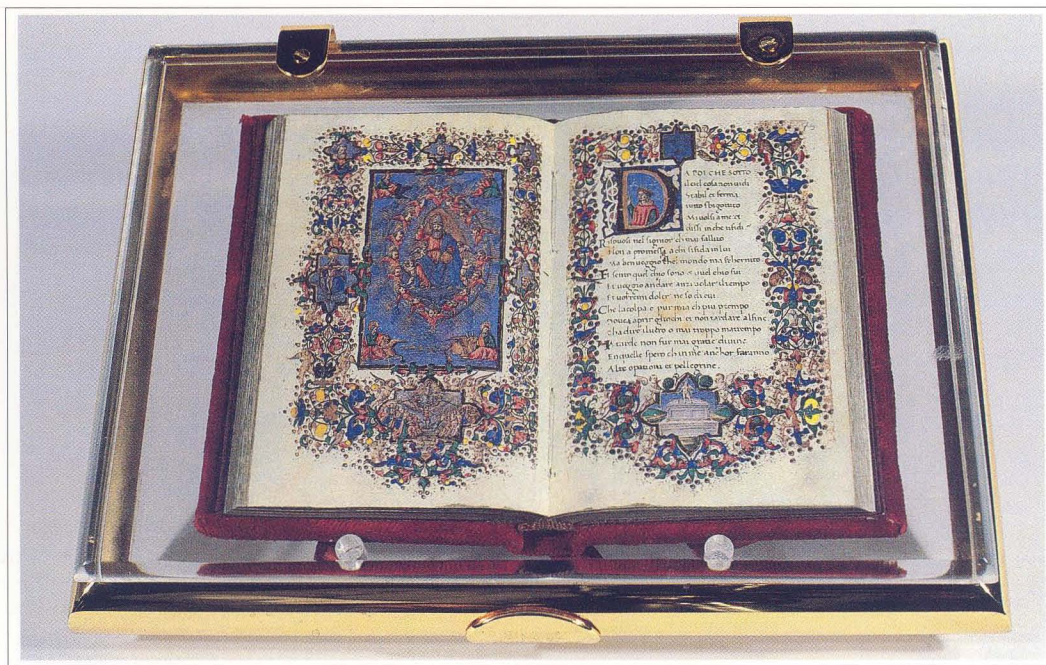 DA POI CHE SOTTO
il ciel cosa non vidi
Stabil et ferma
tutto sbigotito
Mi volsi a me et
dissi in che ti fidi
Risposi nel signor ch mai fallito
Non a promessa a chi si fida in lui
Ma ben veggio chel mondo ma schernito
Et sento quel chio sono et quel chio fui
Et veggio andare anzi volar il tempo
Et doler mi vorrei ne so di cui
Che la colpa e pur mia ch piu per tempo
Dovea aprir gliocchi et non tardare al fine
cha dire il vero o mai troppo mattempo
Ma tarde non fur mai gratie divine
En quelle spero ch in me anchor faranno
Alte operationi et pellegrine.